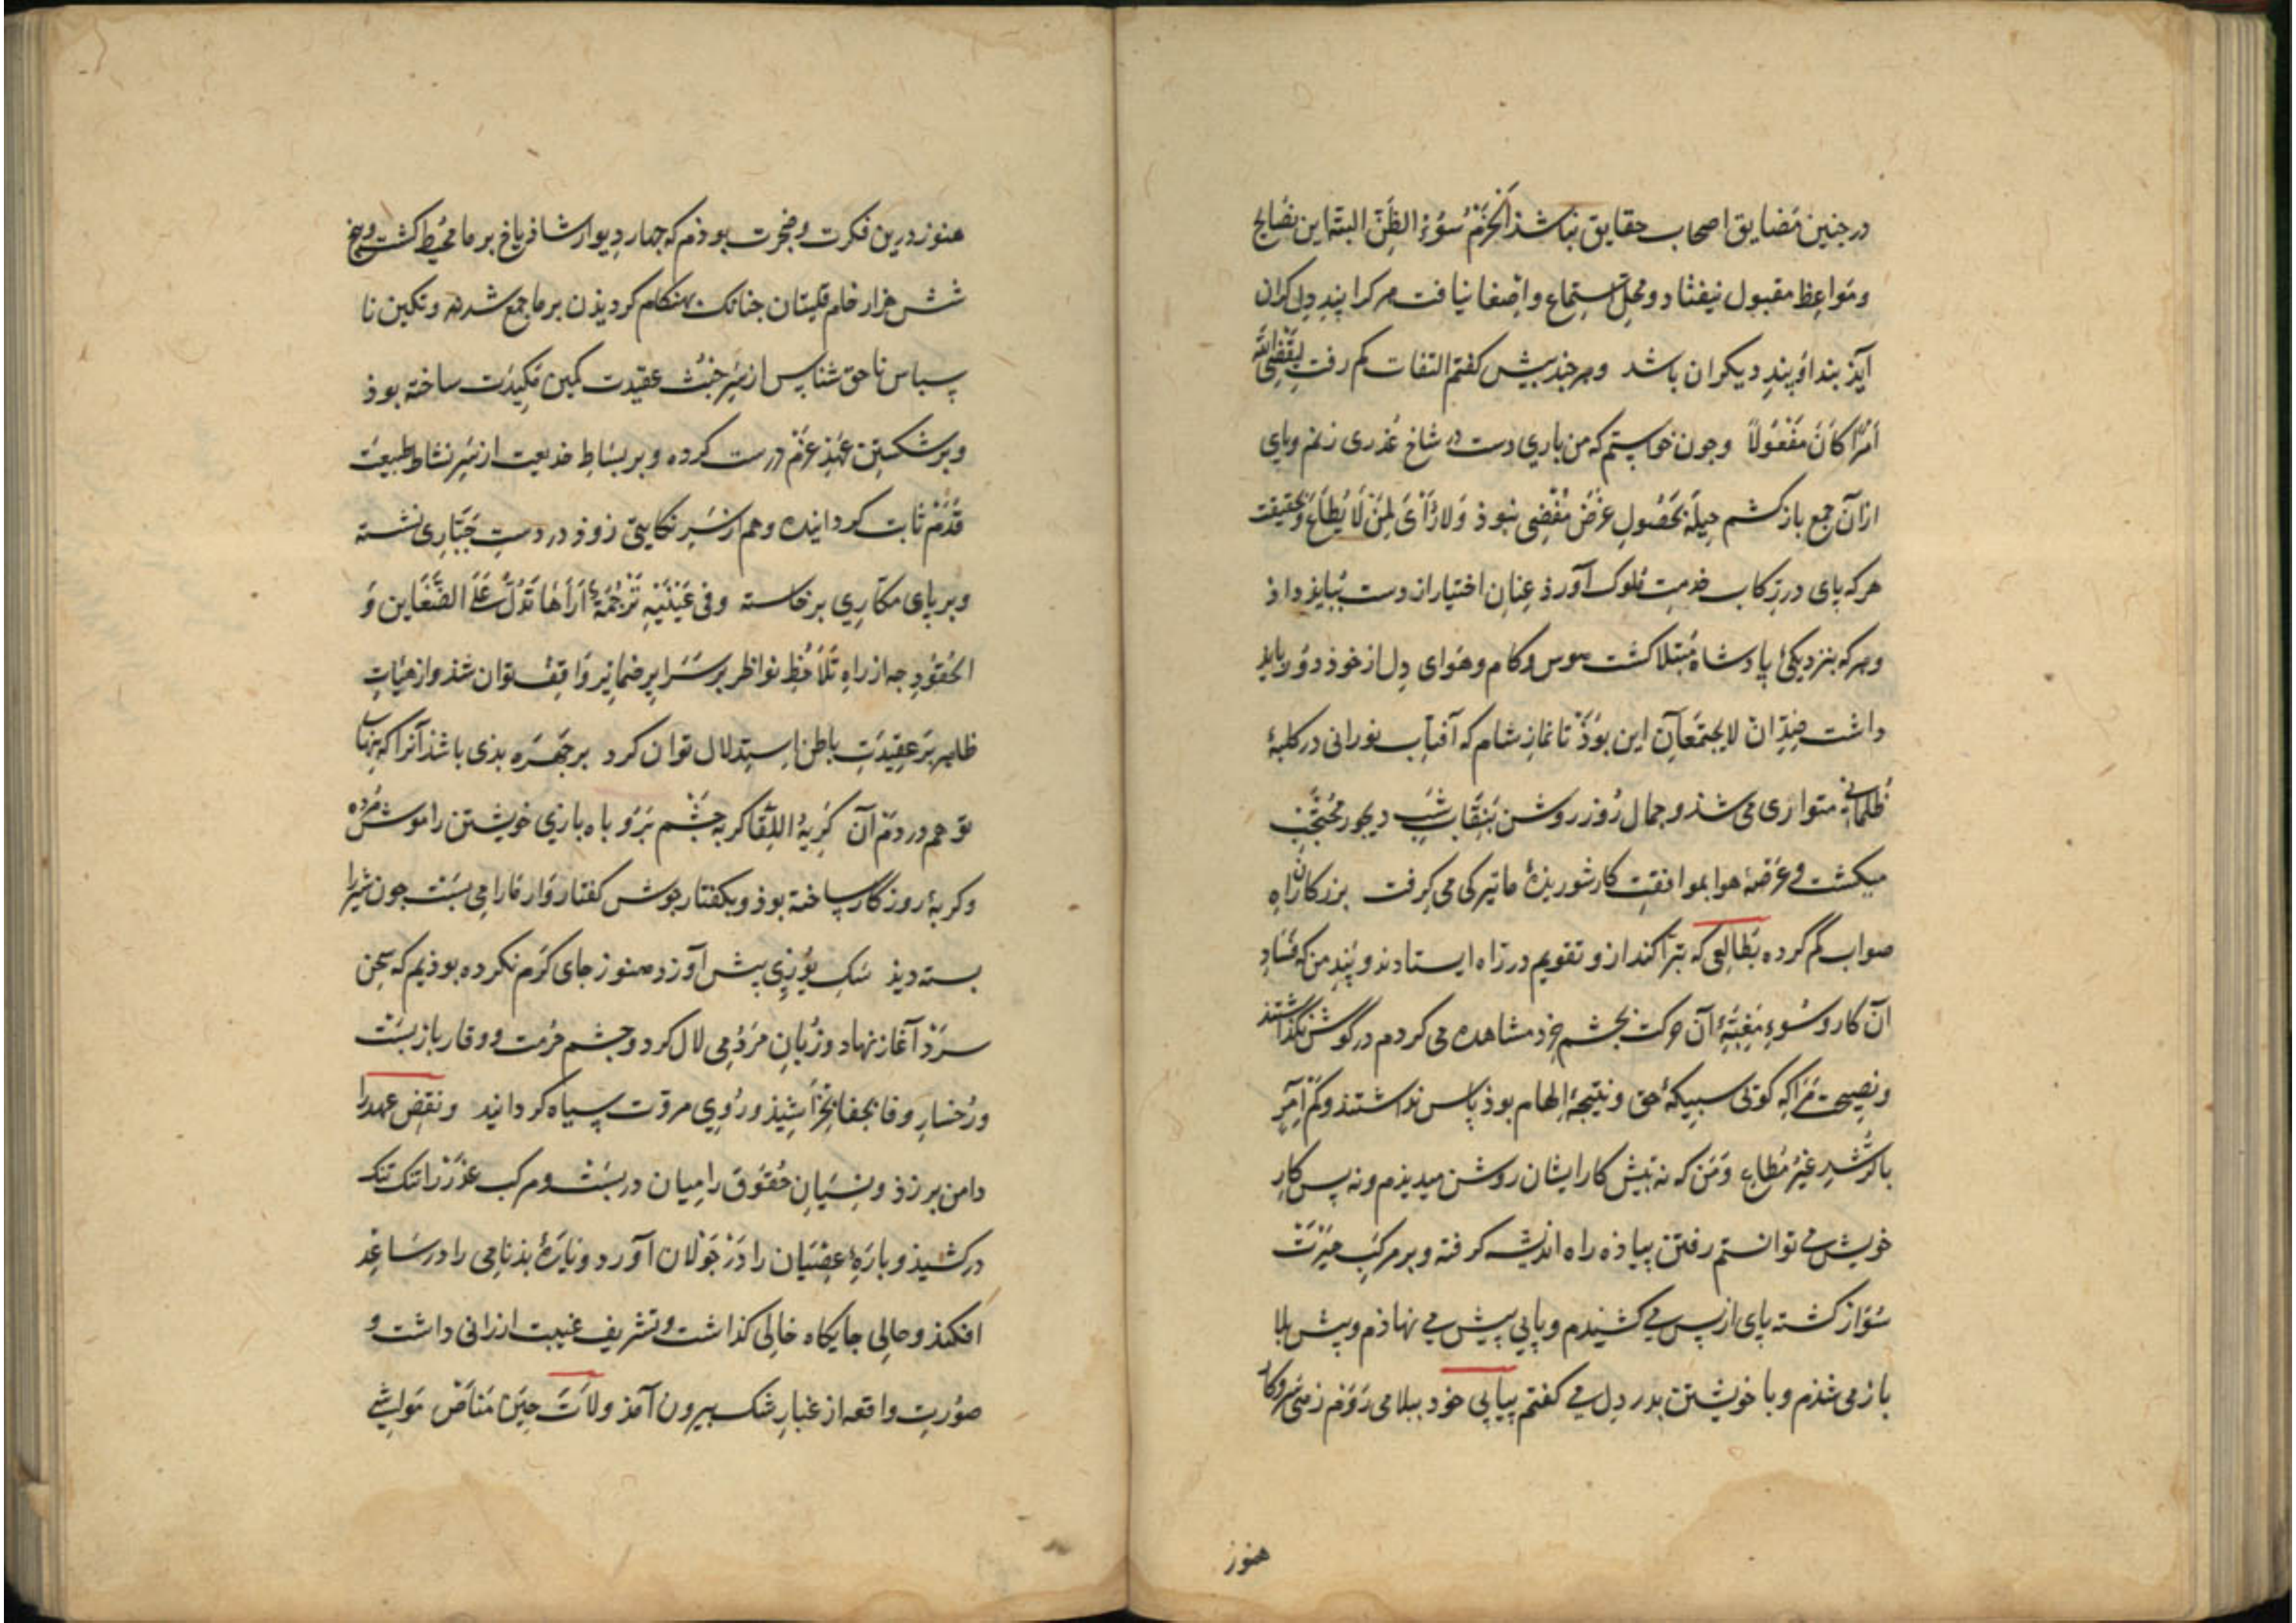 در جنین مَضایق اصحاب حقایق نباشذ اَلحَزْمُ سُوءُ الظَنّ البتّه این نصَایح
و مَواعِظ مقبول نیفتاد و محلّ استماع و اِصْغا نیافت هر کرا پندِ دل کران
آیذ بند او پندِ دیکران باشد و هر جند بیش کفتم التفات کم رفت لِیَقْضِیَ اللّه
اَمْرًا کَانَ مَفْعُولًا و جون خواستم که من باری دست در شاخِ عُذری زنم و پای
از آن جمع باز کشم حِیلَة بحصُولِ غرَض مُفْضِی نبوذ وَلا رَأْیَ لِمَنْ لَا یُطَاع و بحقیقت
هر که پای در رِکاب خدمتِ مُلوک آورذ عِنانِ اختیار از دست بباید داذ
و هر که بنزدیکیٔ پادشاه مُبتلا کشت هوس و کام و هَوای دِل از خوذ دوُر بایذ
داشت ضِدّان لا یجتمعان این بوَذ تا نمازِ شام که آفتاب نورانی در کلبهٔ
ظُلمانی متواری می شذ و جمال رُوز روشن بنِقَاب شبِ دیجور مُحتَجَب
میکشت و عَرَصهٔ هوا بموافقتِ کار شوریذهٔ ما تیرکی می کرفت بزرکان راهِ
صواب کم کرده بطالعی که تبرّا کند از و تقویم در راه ایستادند و پندِ من که فسَادِ
آن کار و سُوءِ مَغِبّهٔ آن حرکت بجشم خِرد مشاهده می کردم در گوش نکذاشتند
و نصِیحت مرا که کوئی سبیکهٔ حق و نتیجهٔ اِلهام بوذ پاس نداشتند وکَمْ آمِرٍ
بالرُّشدِ غیرُ مُطاعٍ وَ مَن که نه بیش کار ایشان روشن میدیذم و نه پس کارِ
خویش می توانستم رفتن پیاذه راه اندیشه کرفته و بر مرکبِ حیَرت
سُوَار کشته پای از پس می کشیدم و پایی پیش می نهاذم و پیش بلا
باز می شذم و با خویشتن بدر دِل می کفتم بپای خود ببلا می روَم زهی سَر و کار
هنوز
هنوز درین فکرت و ضجرت بوذم که جهار دیوار شاذیاخ بر ما محیُط کشت و پنج
شش هزار خام قلبتان جنانک بهنکام کردیذن بر ما جمع شدند و تکین نا
سپاس ناحق شناس از سَرِ خبُث عقیدت کمین مَکِیدَت ساخته بوذ
و بر شکستِن عَهذ عزم درست کرده و بر بساطِ خدیعت از سَرِ نشاط طبیعت
قدَم ثابت کردانیده و هم از سَرِ نکایتی زوذ در دستِ جبّاری نشسته
و بر پای مکّارِی برخاسته و فی عَیْنَیْهِ تَرْجُمَةٌ اَرَاهَا تَدُلُّ عَلَی الضَّغَاین وَ
الحُقوُدِ جه از راهِ تَلاحُظِ نواظر بر سَرَایر ضمایر وَاقِف توان شذ و از هَیٔاتِ
ظاهر بَر عقِیدَتِ باطن استِدلال توان کرد بر جَهرَه بذی باشذ آنرا که نهان
تو هم در دَم آن کَرِیهُ اللِّقا کربه جَشْم بَر و باه بازی خویشتن را موش مُرده
و کربهٔ روزکار ساخته بوذ و بکفتار جوش کفتار وَار مارا می بَست جون شیر را
بسته دیذ سَکِ یوُزِی پیش آورد هنوز جای کَرم نکرده بوذیم که سخن
سَرذ آغاز نهاد و زُبانِ مَردُمِی لال کرد و جشم حُرمت و وقار باز بَست
و رُخسارِ وفا بجفا بخَراشیذ و رُویِ مروّت سیاه کردانید و نقضِ عهد را
دامن بر زذ و نِسیَانِ حقُوُق را میان در بَست و مرکب غدر را تنک تنک
درکشیذ و بارَهٔ عِصْیَان را دَر جَوْلان آورد و یارَهٔ بذنامِی را در سَاعِد
افکنذ و حالِی جایکاه خالِی کذاشت و تشریف غیبت ارزانی داشت و
صوُرتِ واقعه از غبارِ شک بیرون آمذ وَ لاتَ حِینَ مَنَاصْ مواشی